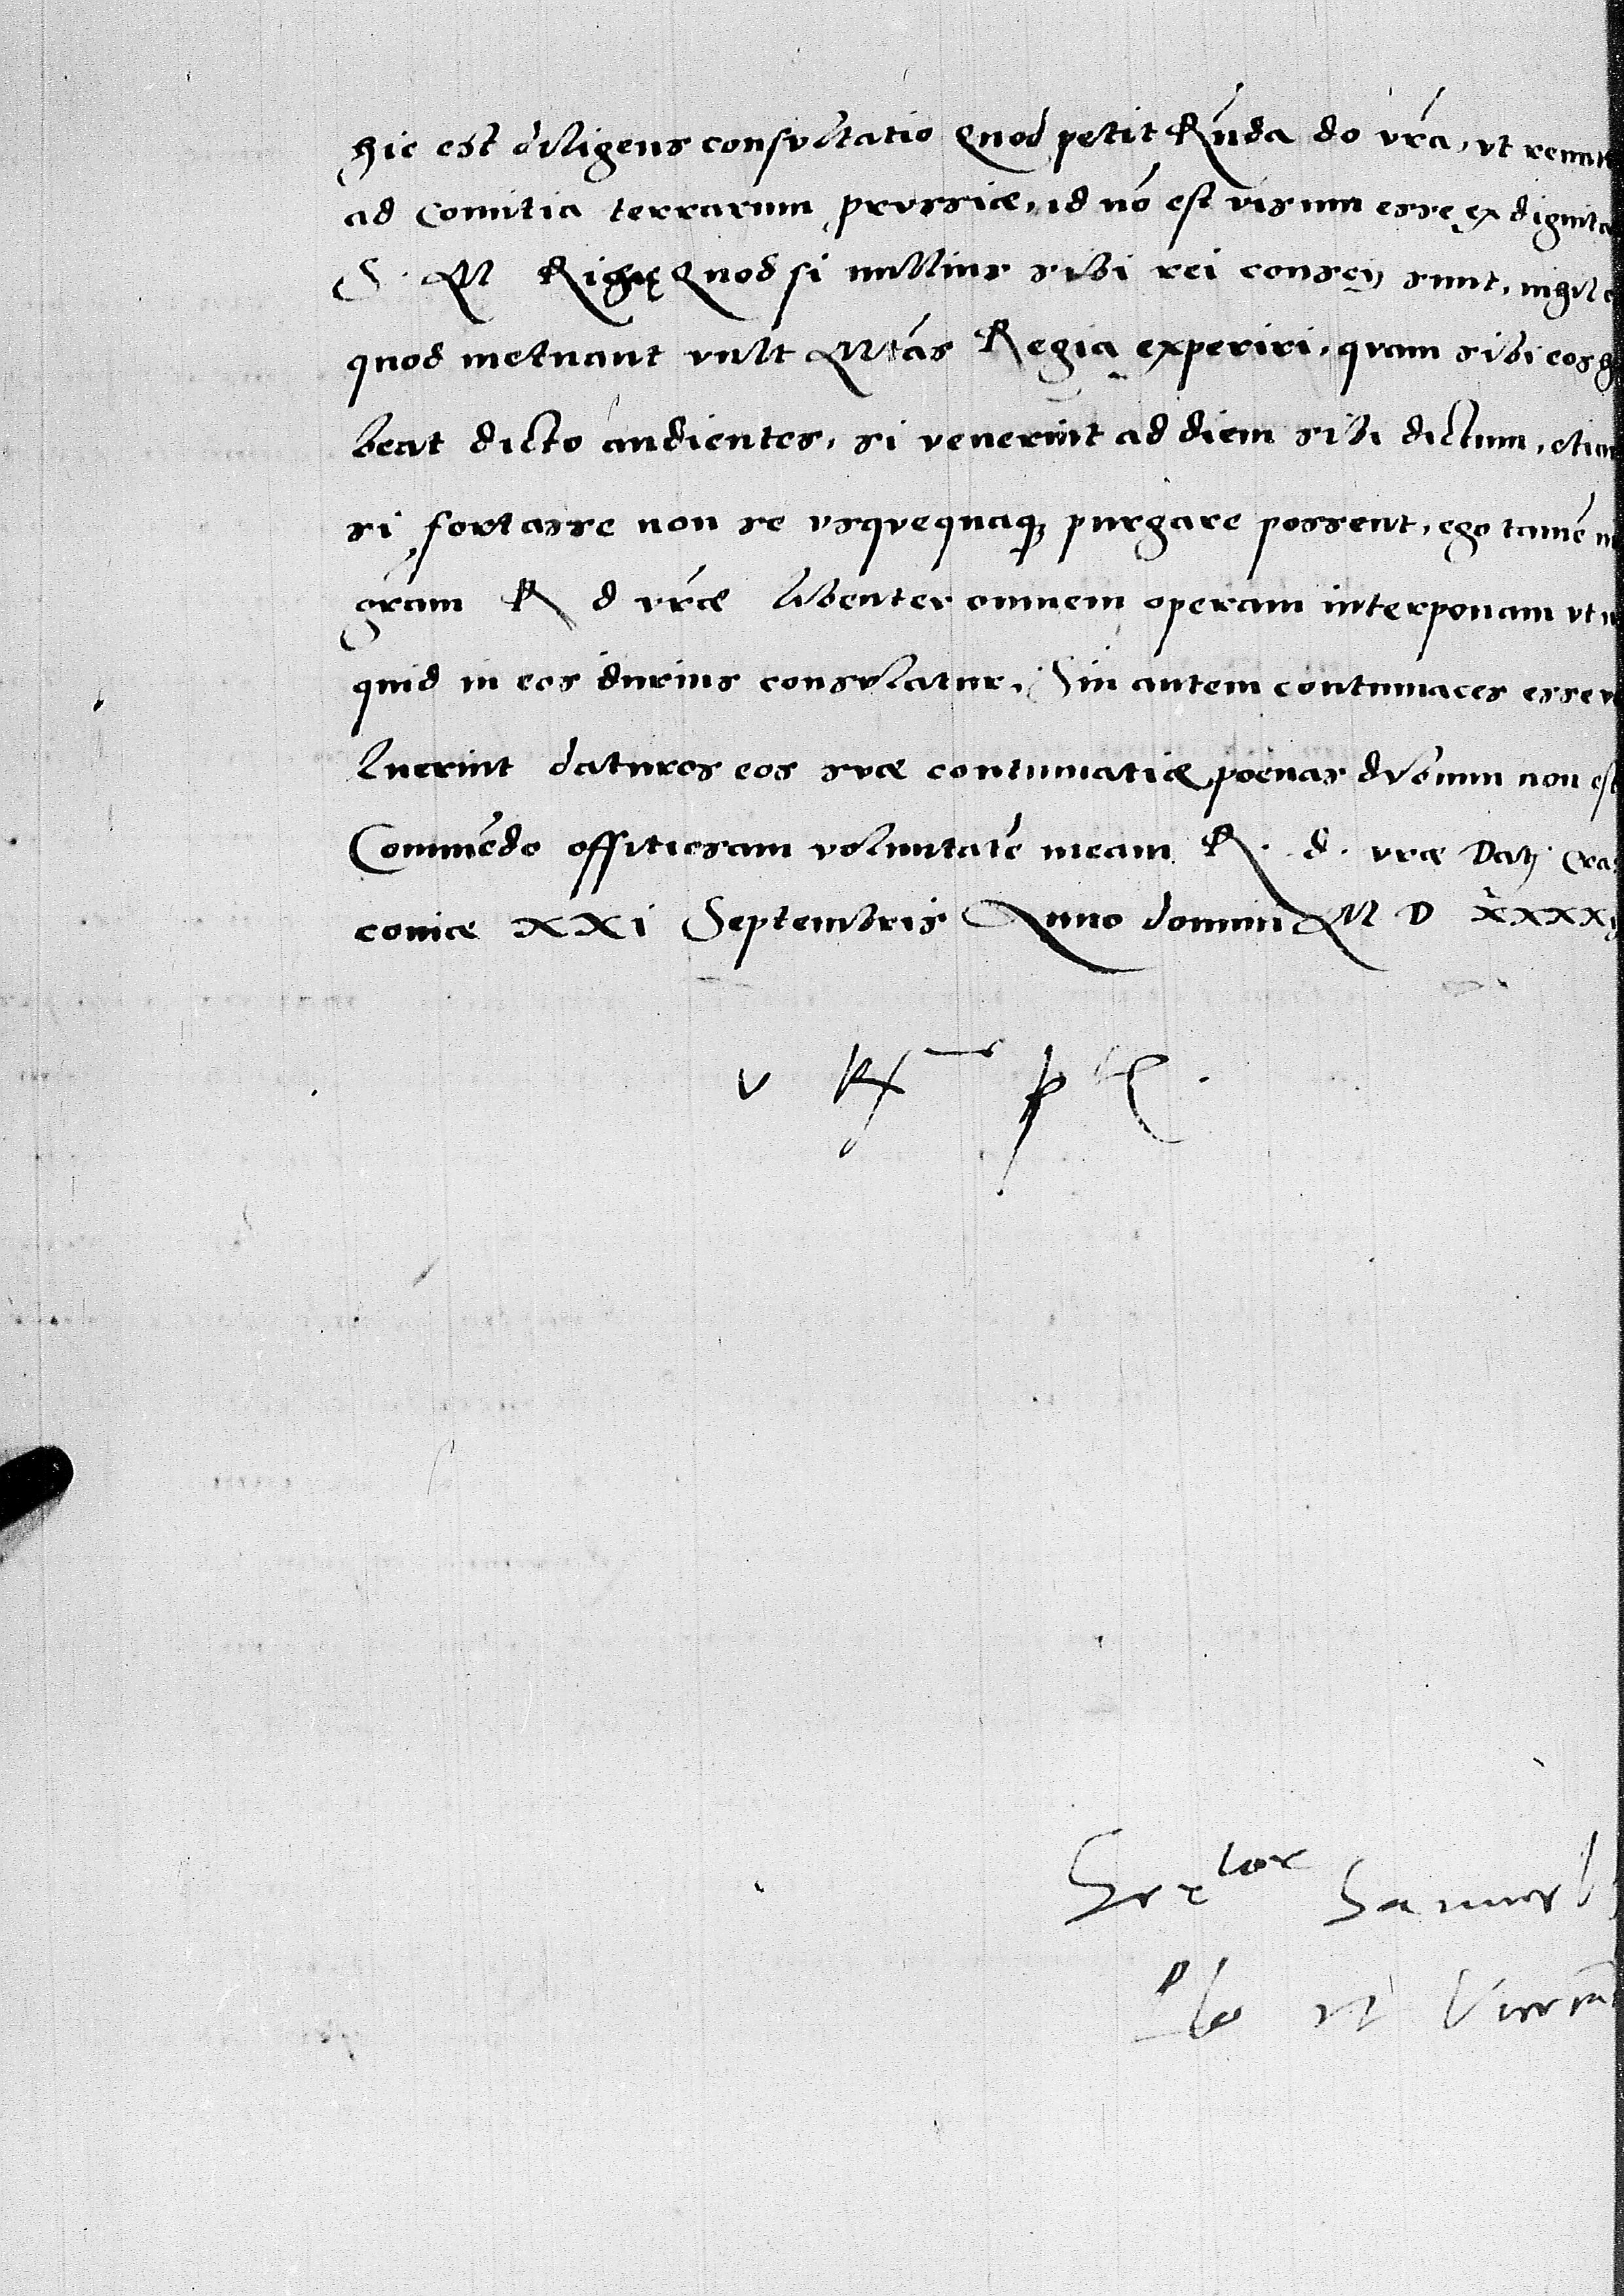 hic est diligens consultatio Quod petit Rńda do vrá, vt remitt
ad comitia terrarum prussiæ, id nó est visum esse ex dignita
S. M Righę Quod si nullius sibi rei conscij sunt, nihil e
quod metuant vult Mtás Regia experiri, quam sibi eos h
beat dicto audientes, si venerint ad diem sibi dictum, etiam
si fortasse non se vsquequaq; purgare possent, ego tamē in
gram R d vræ libenter omnem operam interponam vt n
quid in eos durius consulatur, Sin autem contumaces esse vo
luerint daturos eos suæ contumatiæ poenas dubium non est
Commēdo offitiosam voluntatē meam R. d. vræ Datę Cra
coviæ XXI Septembris Anno domini M D XXXXI
v
Samuel